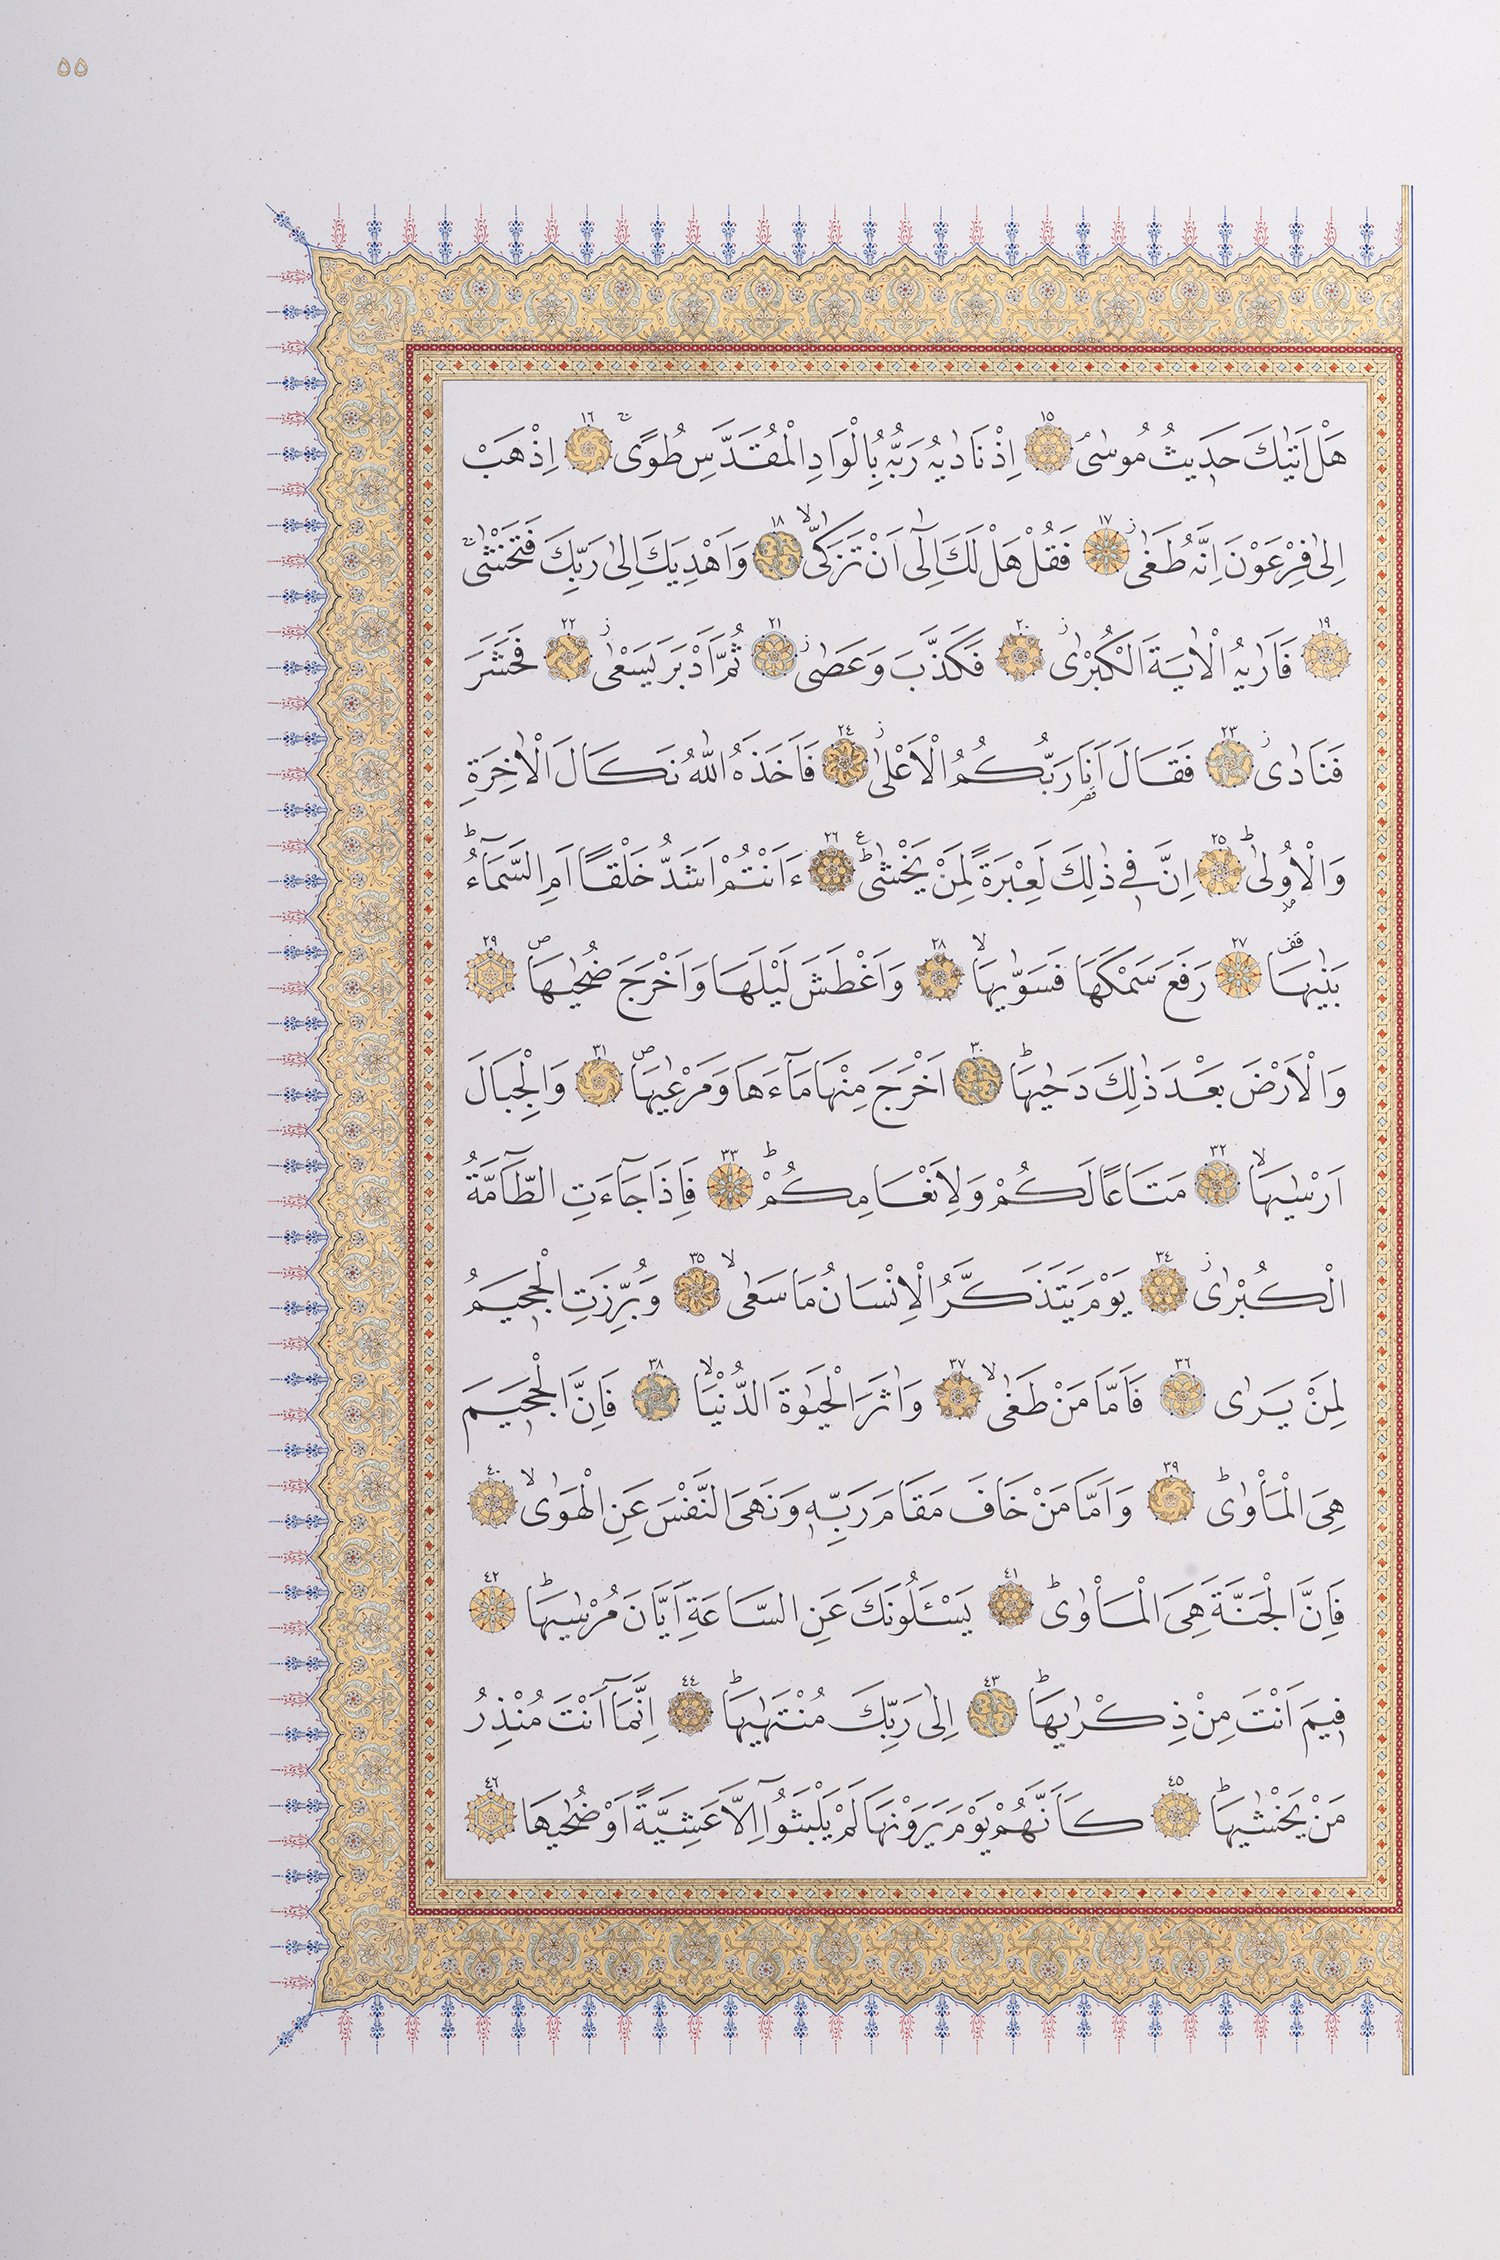 ٥٥
هَلْ اَتٰيكَ حَدٖيثُ مُوسٰىۘ ١٥ اِذْ نَادٰيهُ رَبُّهُ بِالْوَادِ الْمُقَدَّسِ طُوًىۚ ١٦ اِذْهَبْ
اِلٰى فِرْعَوْنَ اِنَّهُ طَغٰىؗ ١٧ فَقُلْ هَلْ لَكَ اِلٰٓى اَنْ تَزَكّٰىۙ ١٨ وَاَهْدِيَكَ اِلٰى رَبِّكَ فَتَخْشٰىۚ
١٩ فَاَرٰيهُ الْاٰيَةَ الْكُبْرٰىؗ ٢٠ فَكَذَّبَ وَعَصٰىؗ ٢١ ثُمَّ اَدْبَرَ يَسْعٰىؗ ٢٢ فَحَشَرَ
فَنَادٰىؗ ٢٣ فَقَالَ اَنَا۬ رَبُّكُمُ الْاَعْلٰىؗ ٢٤ فَاَخَذَهُ اللّٰهُ نَكَالَ الْاٰخِرَةِ
وَالْاُو۫لٰىؕ ٢٥ اِنَّ فٖي ذٰلِكَ لَعِبْرَةً لِمَنْ يَخْشٰىؕ ع ٢٦ ءَاَنْتُمْ اَشَدُّ خَلْقًا اَمِ السَّمَٓاءُؕ
بَنٰيهَا قف ٢٧ رَفَعَ سَمْكَهَا فَسَوّٰيهَاۙ ٢٨ وَاَغْطَشَ لَيْلَهَا وَاَخْرَجَ ضُحٰيهَاࣕ ٢٩
وَالْاَرْضَ بَعْدَ ذٰلِكَ دَحٰيهَاؕ ٣٠ اَخْرَجَ مِنْهَا مَٓاءَهَا وَمَرْعٰيهَاࣕ ٣١ وَالْجِبَالَ
اَرْسٰيهَاۙ ٣٢ مَتَاعًا لَكُمْ وَلِاَنْعَامِكُمْؕ ٣٣ فَاِذَا جَٓاءَتِ الطَّٓامَّةُ
الْكُبْرٰىؗ ٣٤ يَوْمَ يَتَذَكَّرُ الْاِنْسَانُ مَا سَعٰىۙ ٣٥ وَبُرِّزَتِ الْجَحٖيمُ
لِمَنْ يَرٰى ٣٦ فَاَمَّا مَنْ طَغٰىۙ ٣٧ وَاٰثَرَ الْحَيٰوةَ الدُّنْيَاۙ ٣٨ فَاِنَّ الْجَحٖيمَ
هِيَ الْمَاْوٰىؕ ٣٩ وَاَمَّا مَنْ خَافَ مَقَامَ رَبِّهٖ وَنَهَى النَّفْسَ عَنِ الْهَوٰىۙ ٤٠
فَاِنَّ الْجَنَّةَ هِيَ الْمَاْوٰىؕ ٤١ يَسْـَٔلُونَكَ عَنِ السَّاعَةِ اَيَّانَ مُرْسٰيهَاؕ ٤٢
فٖيمَ اَنْتَ مِنْ ذِكْرٰيهَاؕ ٤٣ اِلٰى رَبِّكَ مُنْتَهٰيهَاؕ ٤٤ اِنَّمَٓا اَنْتَ مُنْذِرُ
مَنْ يَخْشٰيهَاؕ ٤٥ كَاَنَّهُمْ يَوْمَ يَرَوْنَهَا لَمْ يَلْبَثُٓوا اِلَّا عَشِيَّةً اَوْ ضُحٰيهَا ٤٦